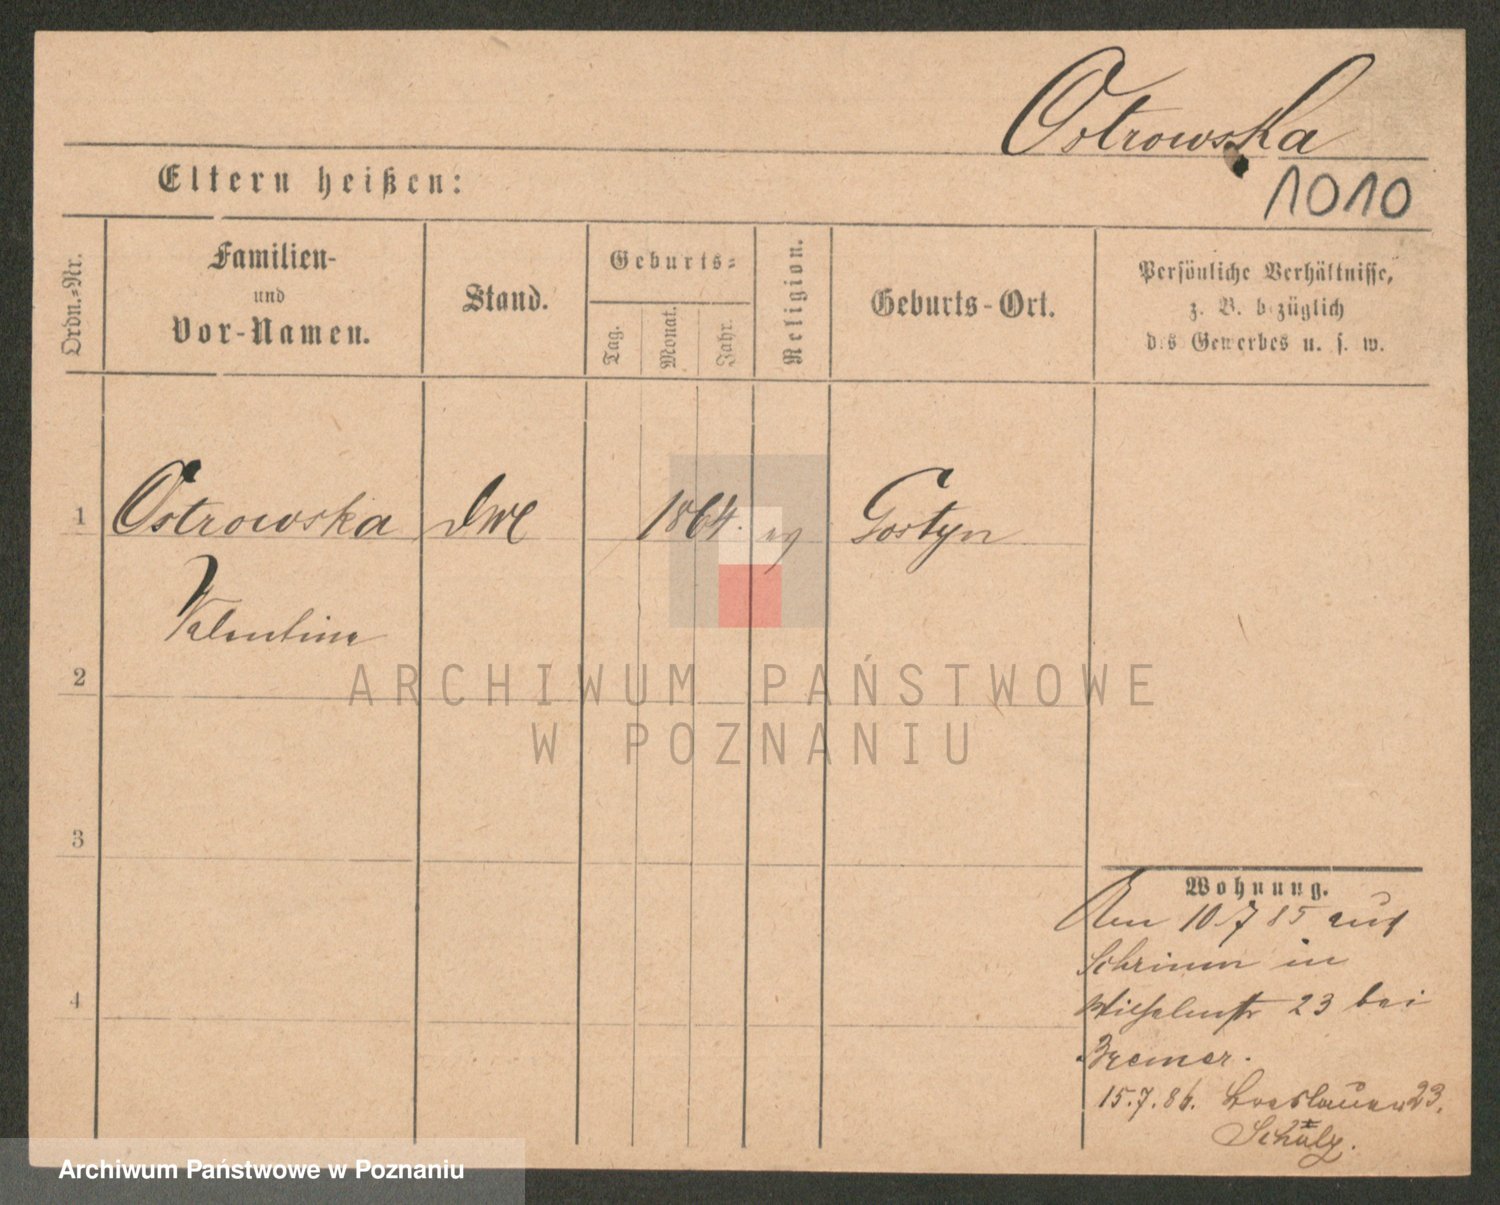 Ostrowska
1010
Eltern heißen:
Ordn.=Nr.
Familien-
und
Vor-Namen.
Stand.
Geburts=
Tag.
Monat.
Jahr.
Religion.
Geburts-Ort.
Persönliche Verhältnisse,
z. B. bezüglich
des Gewerbes u. s. w.
1
Ostrowska
1864.
Gostyn
Valentine
2
ARCHIWUM PAŃSTWOWE
W POZNANIU
3
4
Wohnung.
10.7 85 aus
Schrimm in
23 bei
Bremer.
15.7.86. Breslauer 23.
Schulz.
Archiwum Państwowe w Poznaniu